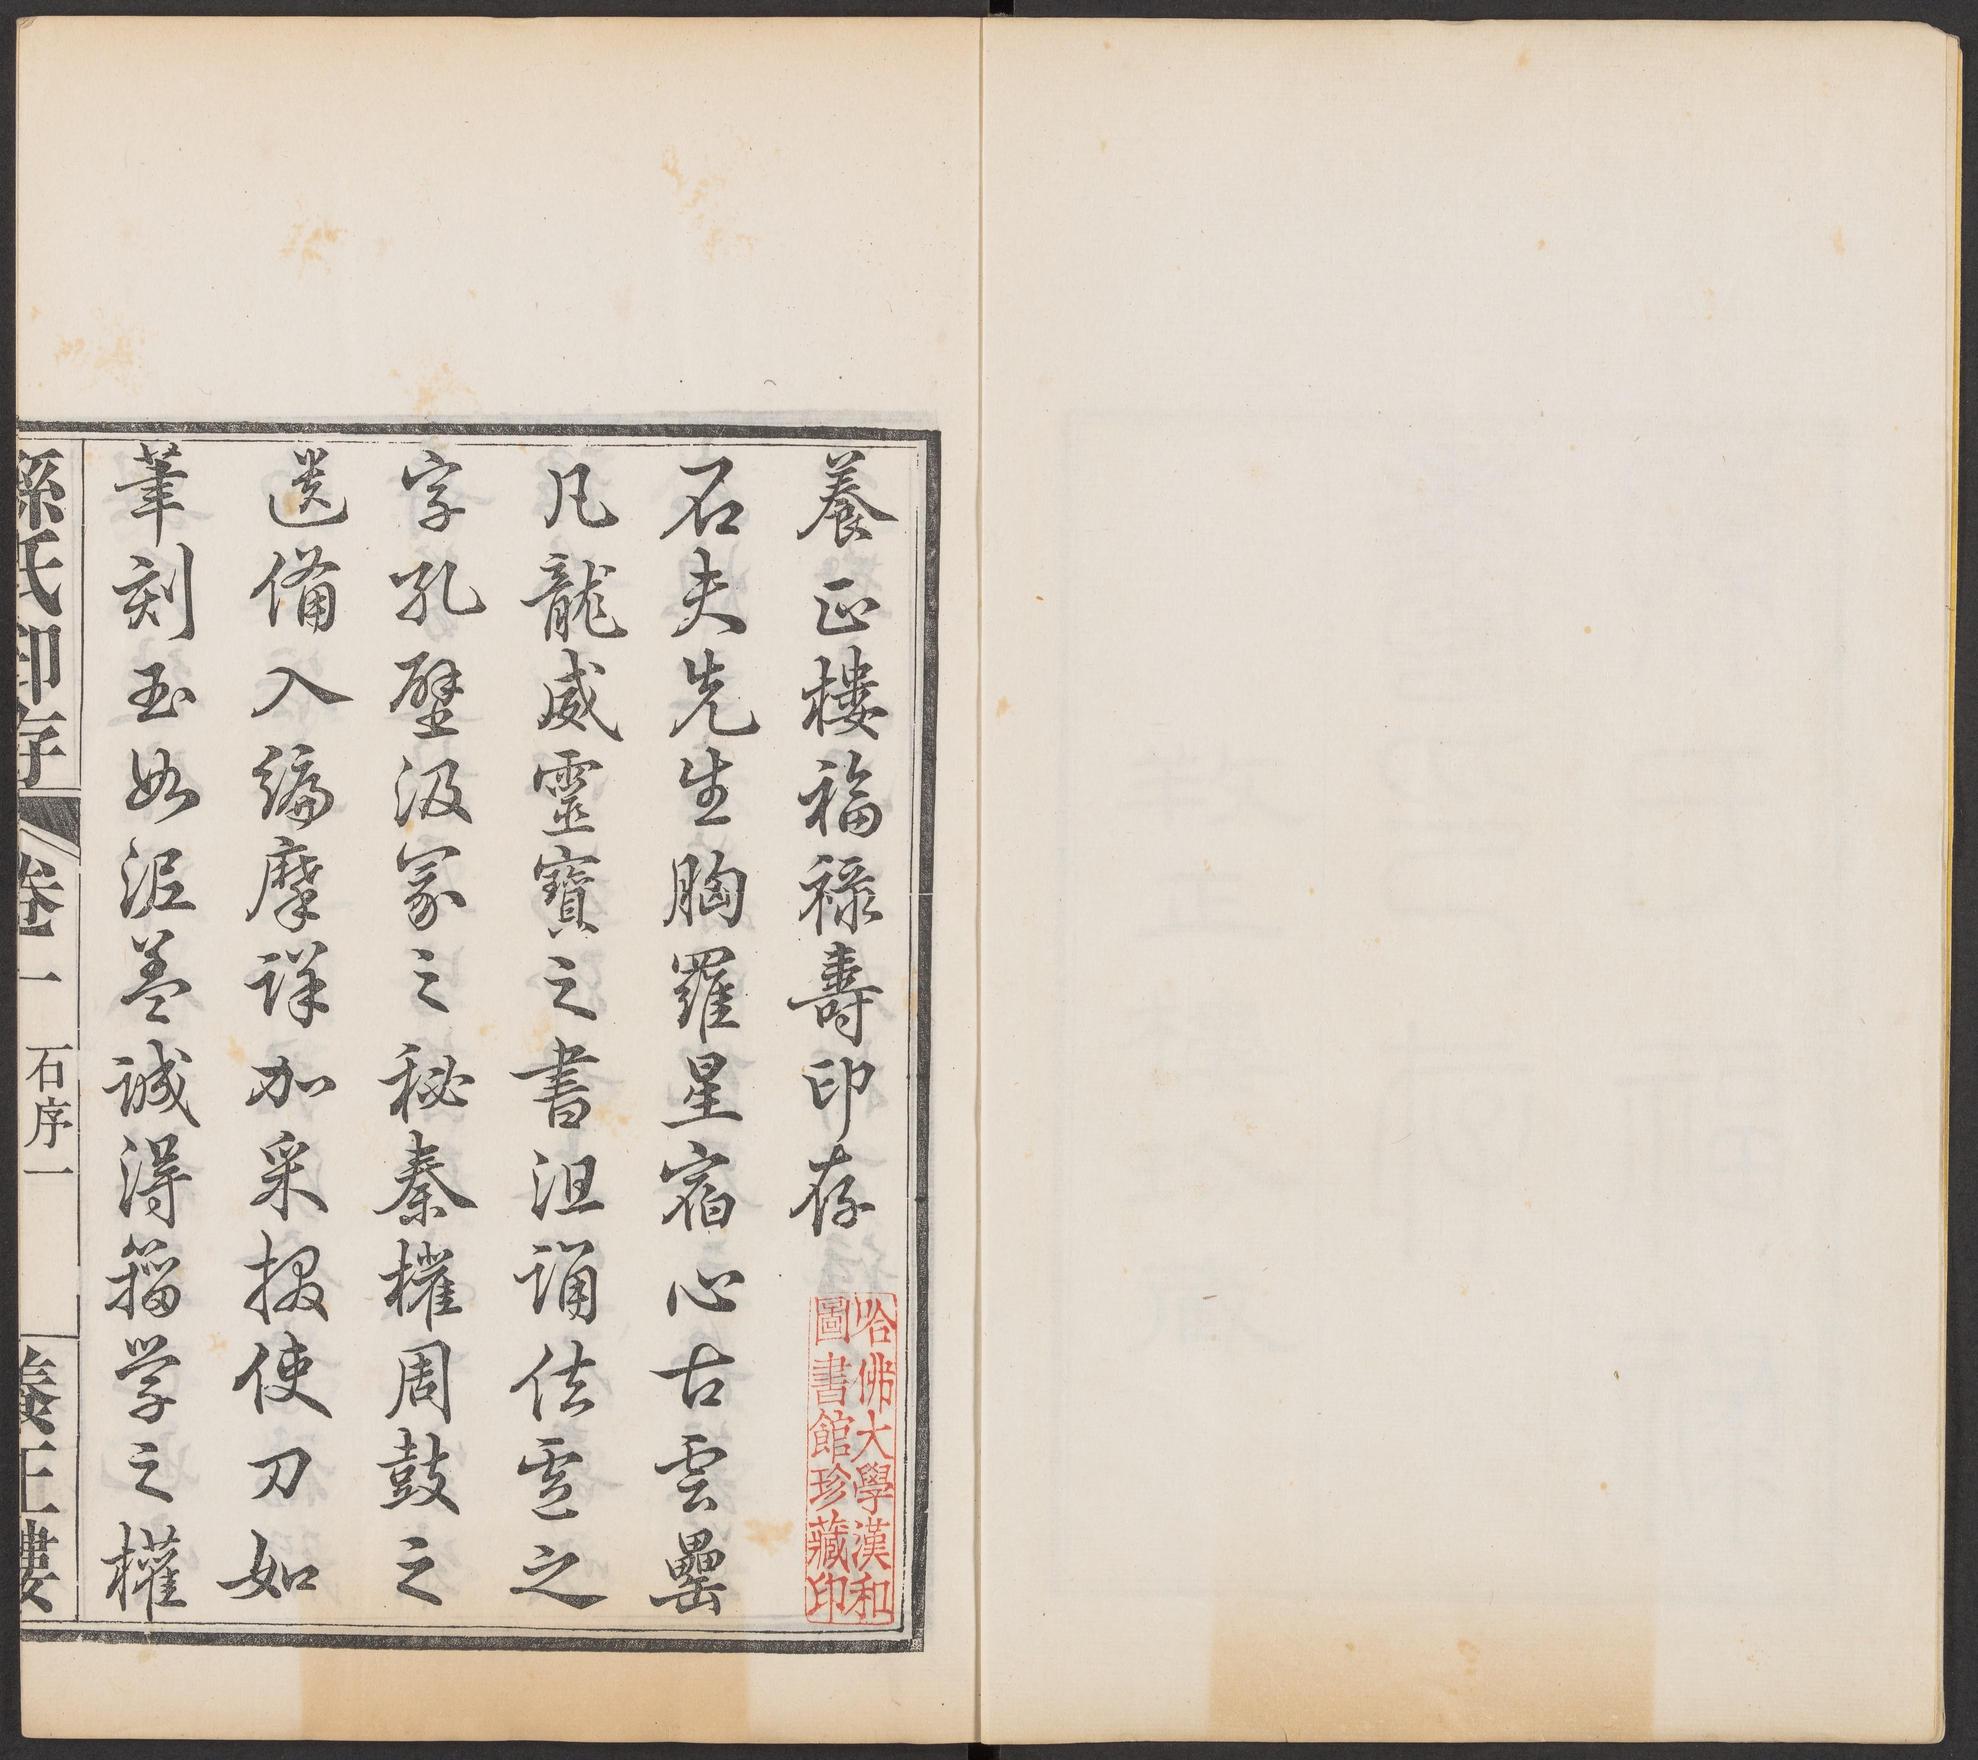 養正樓福祿壽印存
石夫先生胸羅星宿心古雲罍
凡龍威靈寶之書沮誦佉盧之
字孔壁汲冢之秘秦權周鼓之
遺備入編摩詳加采掇使刀如
筆刻玉如泥蓋誠得籀学之權
孫氏印存
卷一
石序一
養正樓
哈佛大學漢和
圖書館珍藏印